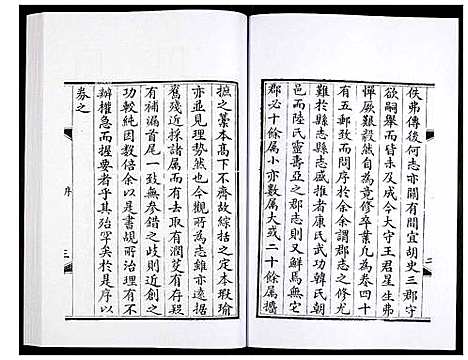 佚弗傳後何志亦闕有間宜胡史三郡守
欲嗣舉而皆未及成今大守王君星生弗
憚厥艱毅然自為竟修卒業凡為卷四十
有五郵致而問序於余余謂郡志之修尤
難於縣志縣志盛推者康氏武功韓氏朝
邑而陸氏靈壽亞之郡志則又鮮焉無它
郡必十餘屬小亦數屬大或二十餘屬攟
摭之纂本高下不齊故綜括之定本瑕瑜
亦並見理勢然也今觀所為志雖亦遠據
舊殘近採諸属而有去取有潤芟有存毀
有補漏首尾一以貫無參錯之歧則近創之
功較純因數倍余以是書覘所治理有不
辦權急而握要者乎其殆罕矣於是序以
券之
序
二
三